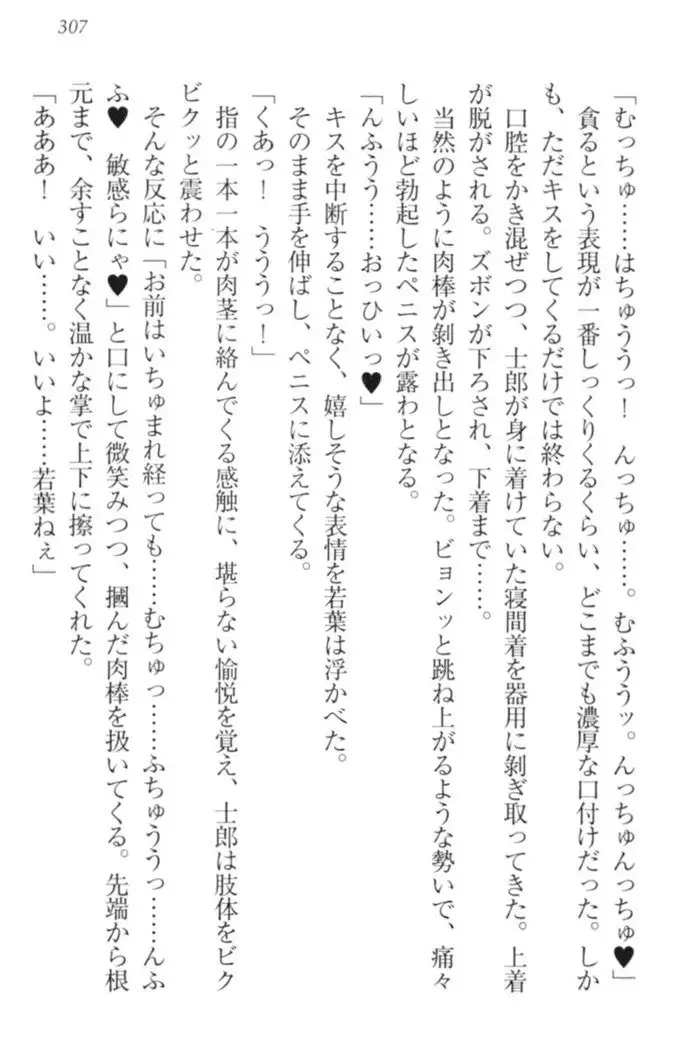 307
「むっちゅ……はちゅううっ！　んっちゅ……。むふううッ。んっちゅんっちゅ♥」
貪るという表現が一番しっくりくるくらい、どこまでも濃厚な口付けだった。しか
も、ただキスをしてくるだけでは終わらない。
口腔をかき混ぜつつ、士郎が身に着けていた寝間着を器用に剥ぎ取ってきた。上着
が脱がされる。ズボンが下ろされ、下着まで……。
当然のように肉棒が剥き出しとなった。ビョンッと跳ね上がるような勢いで、痛々
しいほど勃起したペニスが露わとなる。
「んふうう……おっひいっ♥」
キスを中断することなく、嬉しそうな表情を若葉は浮かべた。
そのまま手を伸ばし、ペニスに添えてくる。
「くあっ！　うううっ！」
指の一本一本が肉茎に絡んでくる感触に、堪らない愉悦を覚え、士郎は肢体をビク
ビクッと震わせた。
そんな反応に「お前はいちゅまれ経っても……むちゅっ……ふちゅううっ……んふ
ふ♥　敏感らにゃ♥」と口にして微笑みつつ、摑んだ肉棒を扱いてくる。先端から根
元まで、余すことなく温かな掌で上下に擦ってくれた。
「あああ！　いい……。いいよ……若葉ねぇ」